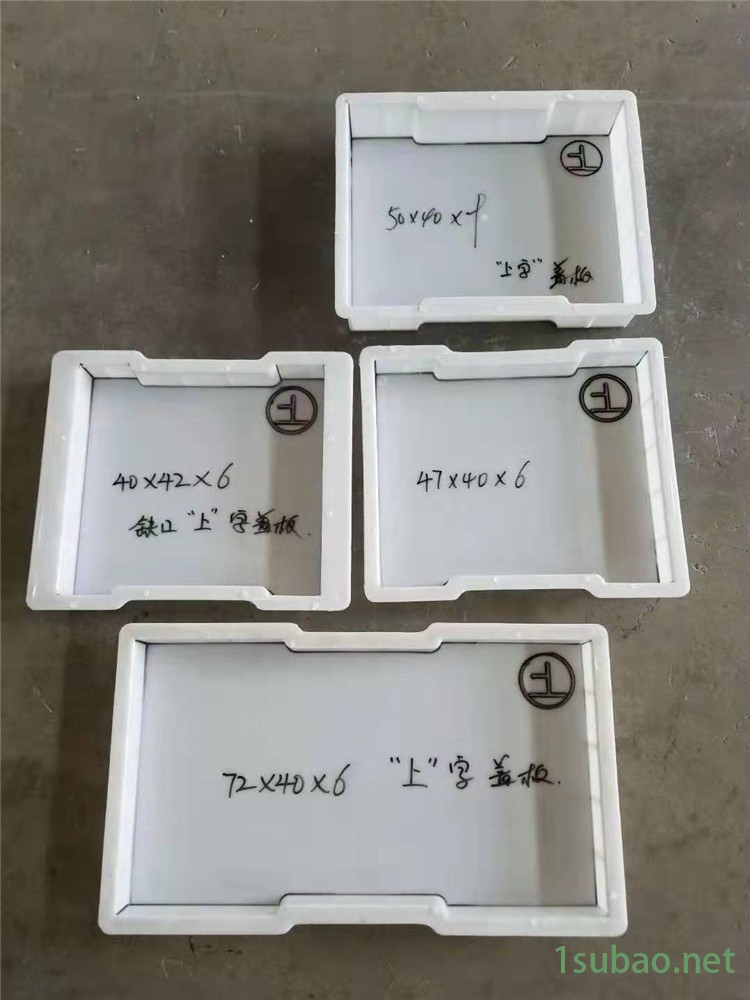 上
50×40×9
"上字"盖板
上
40×42×6
缺口"上"字盖板.
上
47×40×6
上
72×40×6 "上"字盖板.
1subao.net